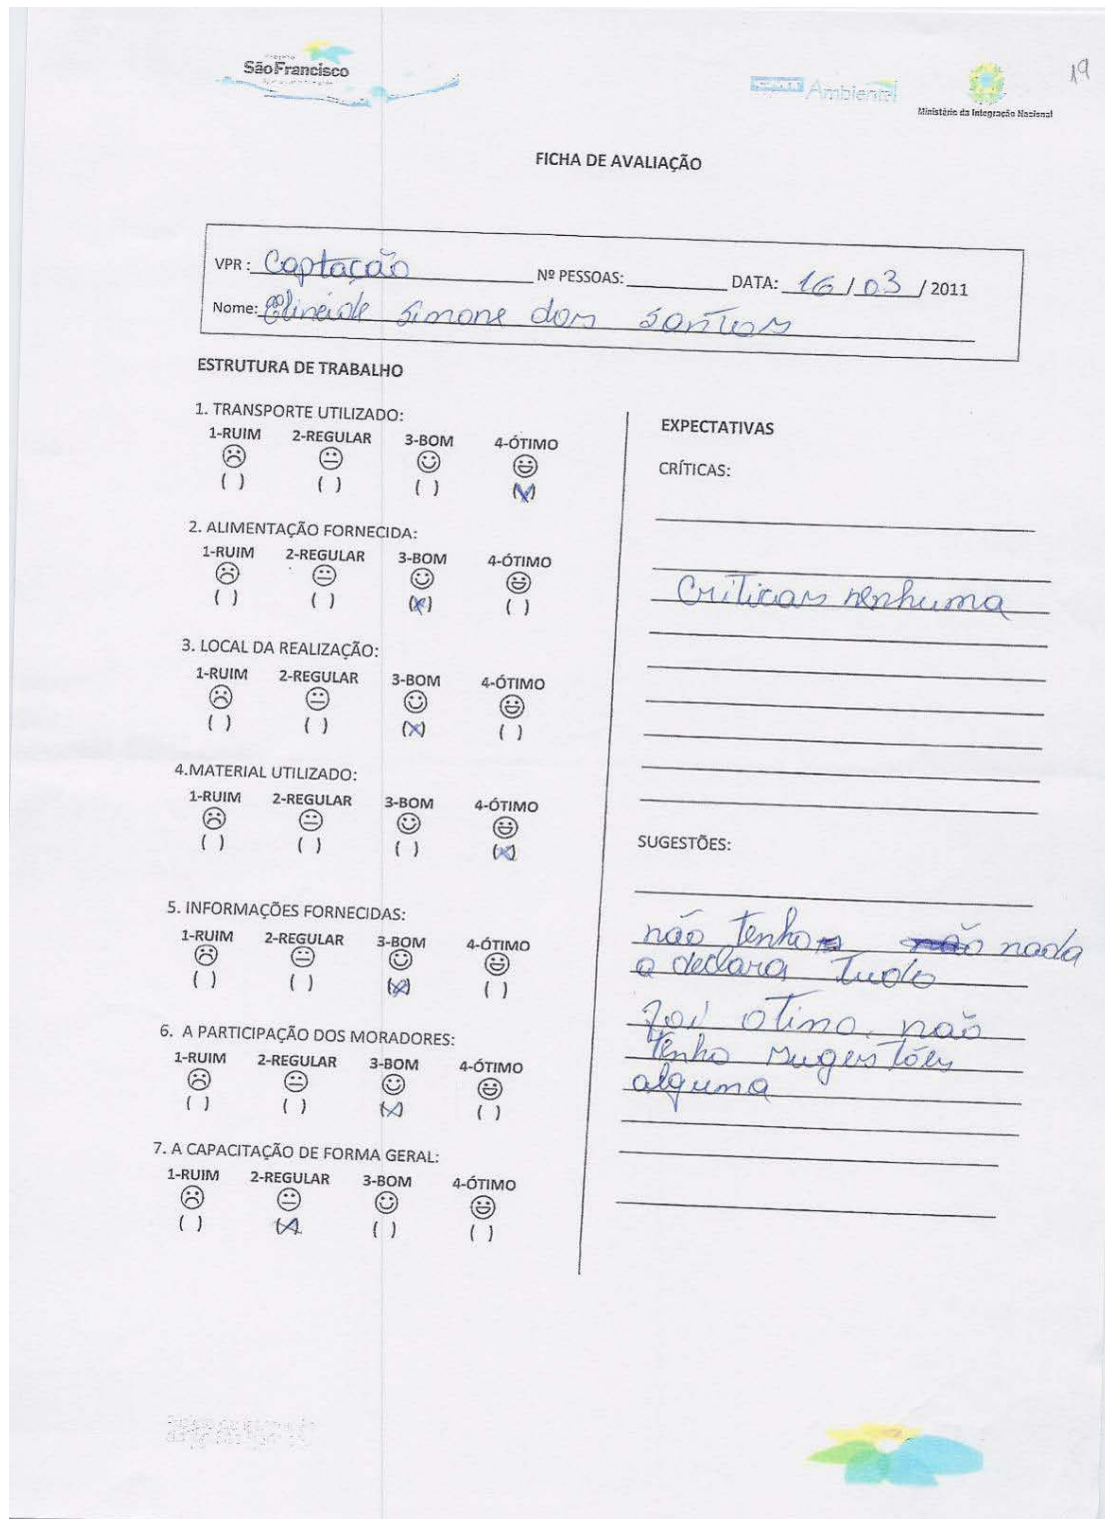 São Francisco
Ambiental
Ministério da Integração Nacional
19
FICHA DE AVALIAÇÃO
VPR: Captação Nº PESSOAS: DATA: 16 / 03 / 2011
Nome: Simone dos Santos
ESTRUTURA DE TRABALHO
1. TRANSPORTE UTILIZADO:
1-RUIM 2-REGULAR 3-BOM 4-ÓTIMO
( ) ( ) ( ) (X)
2. ALIMENTAÇÃO FORNECIDA:
1-RUIM 2-REGULAR 3-BOM 4-ÓTIMO
( ) ( ) (X) ( )
3. LOCAL DA REALIZAÇÃO:
1-RUIM 2-REGULAR 3-BOM 4-ÓTIMO
( ) ( ) (X) ( )
4.MATERIAL UTILIZADO:
1-RUIM 2-REGULAR 3-BOM 4-ÓTIMO
( ) ( ) ( ) (X)
5. INFORMAÇÕES FORNECIDAS:
1-RUIM 2-REGULAR 3-BOM 4-ÓTIMO
( ) ( ) (X) ( )
6. A PARTICIPAÇÃO DOS MORADORES:
1-RUIM 2-REGULAR 3-BOM 4-ÓTIMO
( ) ( ) (X) ( )
7. A CAPACITAÇÃO DE FORMA GERAL:
1-RUIM 2-REGULAR 3-BOM 4-ÓTIMO
( ) (X) ( ) ( )
EXPECTATIVAS
CRÍTICAS:
Criticas nenhuma
SUGESTÕES:
não tenho nada
a declara tudo
foi otimo. não
tenho sugestões
alguma